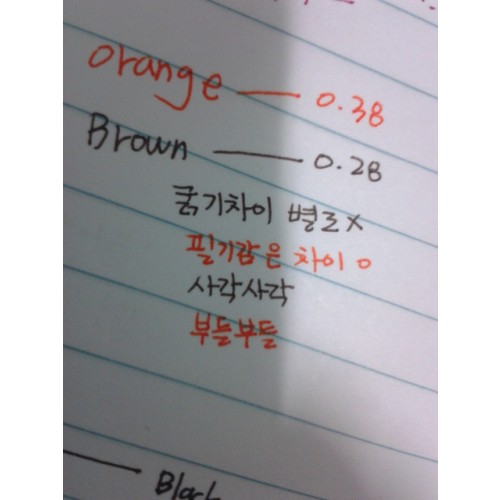 orange — 0.38
Brown — 0.28
굵기차이 별로x
필기감은 차이o
사각사각
부들부들
— Black